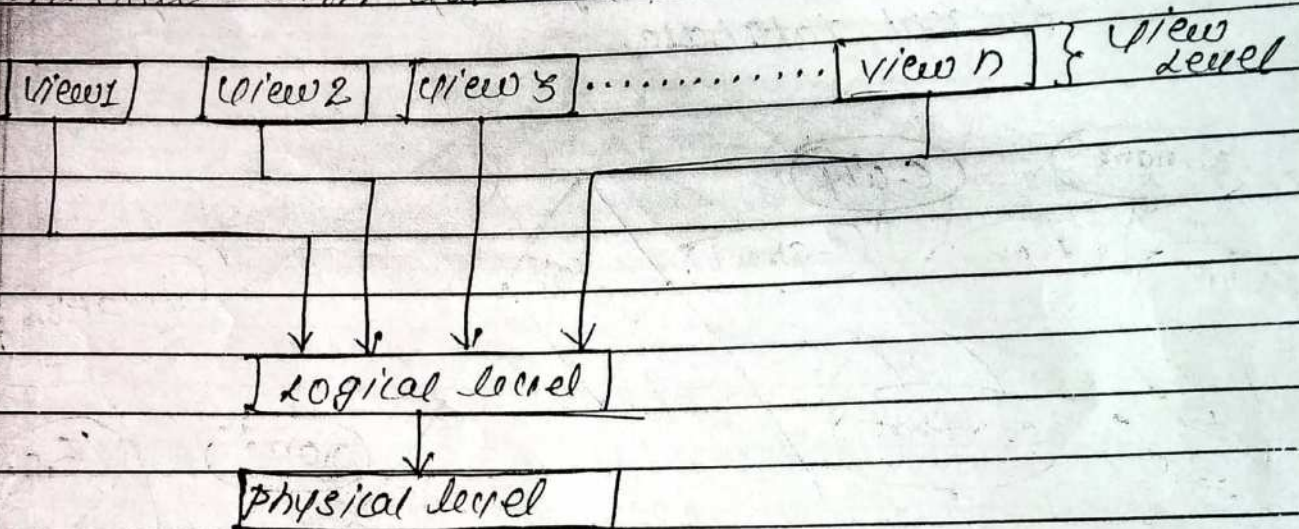 view1 view 2 view 3 ............. view n } view
level
Logical level
physical level